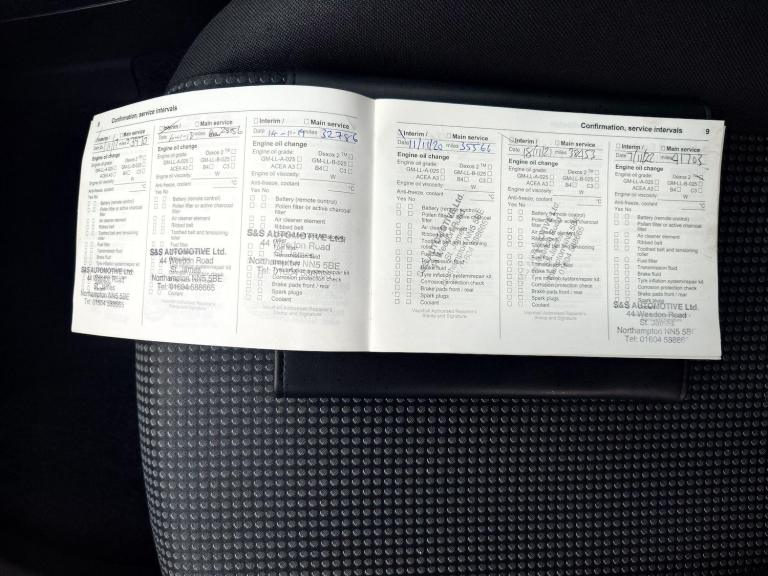 8
Confirmation, service intervals
Interim / Main service
Engine oil change
Engine oil grade: Dexos 2 ™
GM-LL-A-025 GM-LL-B-025
ACEA A3 B4 C3
Engine oil viscosity: W
Anti-freeze, coolant °C
Yes No
Battery (remote control)
Pollen filter or active charcoal filter
Air cleaner element
Ribbed belt
Toothed belt and tensioning roller
Fuel filter
Transmission fluid
Brake fluid
S&S AUTOMOTIVE Ltd.
44 Weedon Road
St. James
Northampton NN5 5BE
Tel: 01604 588665
Interim / Main service
miles
Engine oil change
Engine oil grade: Dexos 2 ™
GM-LL-A-025 GM-LL-B-025
ACEA A3 B4 C3
Engine oil viscosity: W
Anti-freeze, coolant °C
Yes No
Battery (remote control)
Pollen filter or active charcoal filter
Air cleaner element
Ribbed belt
Toothed belt and tensioning roller
Fuel filter
S&S AUTOMOTIVE Ltd.
44 Weedon Road
St. James
Northampton NN5 5BE
Tel: 01604 588665
Coolant
Interim / Main service
Date 14-11-19 miles 32786
Engine oil change
Engine oil grade: Dexos 2 ™
GM-LL-A-025 GM-LL-B-025
ACEA A3 B4 C3
Engine oil viscosity: W
Anti-freeze, coolant °C
Yes No
Battery (remote control)
Pollen filter or active charcoal
filter
Air cleaner element
Ribbed belt
S&S AUTOMOTIVE Ltd.
44 Weedon Road
Northampton NN5 5BE
Tyre inflation system/repair kit
Corrosion protection check
Brake pads front / rear
Spark plugs
Coolant
Vauxhall Authorised Repairer's
Stamp and Signature
Confirmation, service intervals 9
Interim / Main service
Date 11/11/20 miles 35566
Engine oil change
Engine oil grade: Dexos 2 ™
GM-LL-A-025 GM-LL-B-025
ACEA A3 B4 C3
Engine oil viscosity: W
Anti-freeze, coolant °C
Yes No
Battery (remote control)
Pollen filter or active charcoal
filter
Air cleaner element
Ribbed belt
Toothed belt and tensioning
roller
Fuel filter
Transmission fluid
Brake fluid
Tyre inflation system/repair kit
Corrosion protection check
Brake pads front / rear
Spark plugs
Coolant
Vauxhall Authorised Repairer's
Stamp and Signature
Interim / Main service
Date miles
Engine oil change
Engine oil grade: Dexos 2 ™
GM-LL-A-025 GM-LL-B-025
ACEA A3 B4 C3
Engine oil viscosity: W
Anti-freeze, coolant °C
Yes No
Battery (remote control)
Pollen filter or active charcoal
filter
Air cleaner element
Ribbed belt
Toothed belt and tensioning
roller
Fuel filter
Transmission fluid
Brake fluid
Tyre inflation system/repair kit
Corrosion protection check
Brake pads front / rear
Spark plugs
Coolant
Vauxhall Authorised Repairer's
Stamp and Signature
Interim / Main service
Date 7/11/22 miles 41703
Engine oil change
Engine oil grade: Dexos 2
GM-LL-A-025 GM-LL-B-025
ACEA A3 B4 C3
Engine oil viscosity: W
Anti-freeze, coolant °C
Yes No
Battery (remote control)
Pollen filter or active charcoal
filter
Air cleaner element
Ribbed belt
Toothed belt and tensioning
roller
Fuel filter
Transmission fluid
Brake fluid
Tyre inflation system/repair kit
Corrosion protection check
Brake pads front / rear
Spark plugs
S&S AUTOMOTIVE Ltd.
44 Weedon Road
St. James
Northampton NN5 5BE
Tel: 01604 588665